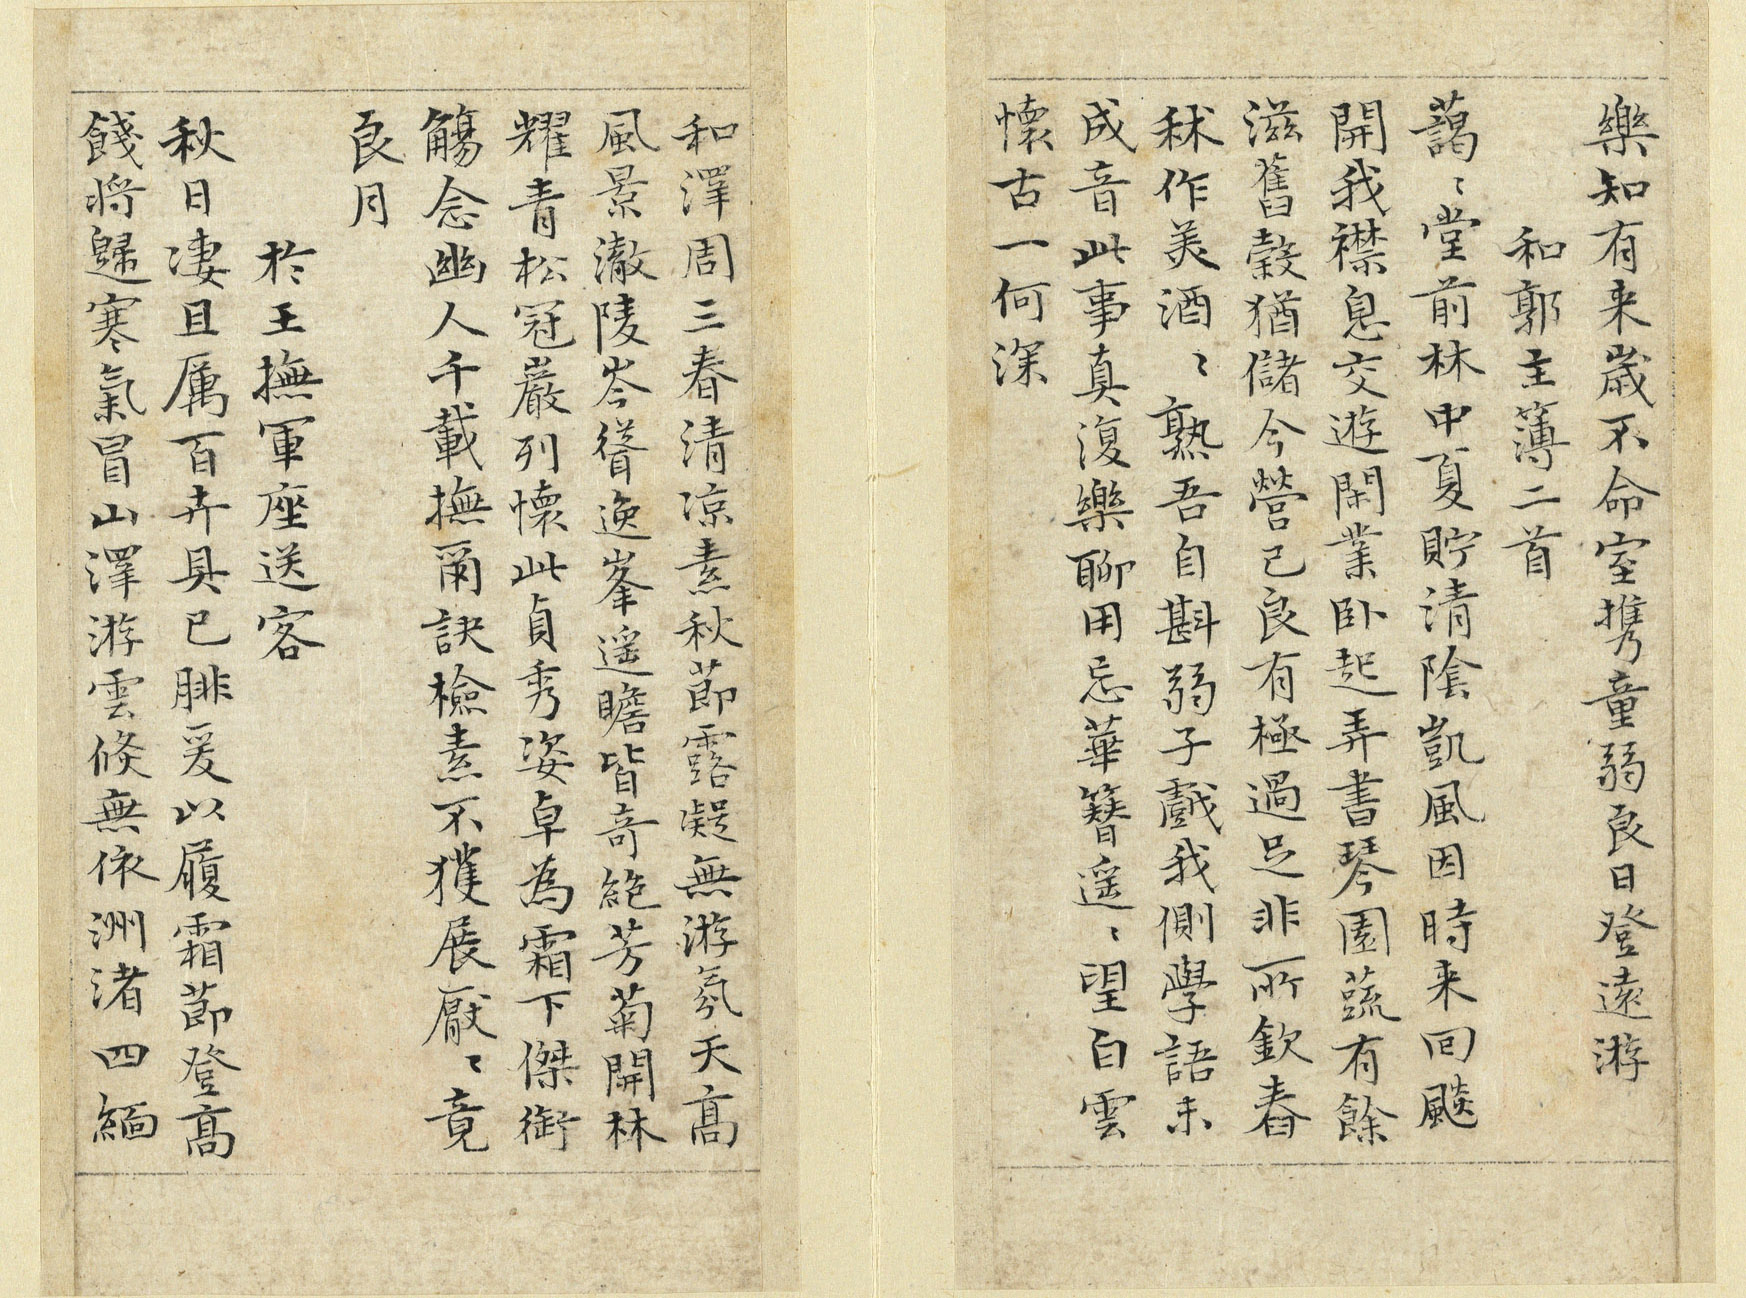 樂知有来歲不命室携童弱良日登遠游
和郭主薄二首
藹〻堂前林中夏貯清陰凱風因時来回飈
開我襟息交遊閑業卧起弄書琴園蔬有餘
滋舊穀猶儲今營己良有極過足非所欽舂
秫作美酒〻熟吾自斟弱子戲我側學語未
成音此事真復樂聊用忘華簪遥〻望白雲
懷古一何深
和澤周三春清凉素秋莭露凝無游氛天髙
風景澈陵岑聳逸峯遥瞻皆奇絶芳菊開林
耀青松冠巖列懷此貞秀姿卓為霜下傑銜
觴念幽人千載撫爾訣檢素不獲展厭〻竟
良月
於王撫軍座送客
秋日凄且厲百卉具已腓爰以履霜莭登髙
餞将歸寒氣冒山澤游雲倏無依洲渚四緬